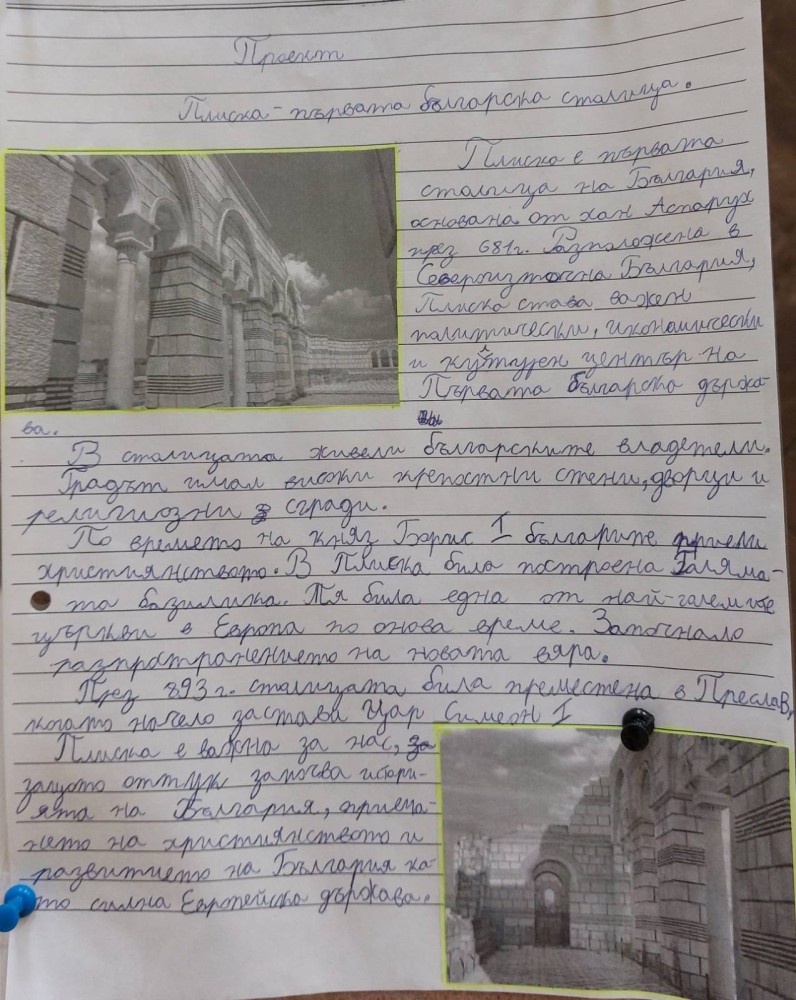 Проект
Плиска - първата българска столица.
Плиска е първата
столица на България,
основана от хан Аспарух
през 681г. Разположена в
Североизточна България,
Плиска става важен
политически, икономически
и културен център на
Първата българска държа-
ва.
В столицата живели българските владетели.
Градът имал високи крепостни стени, дворци и
религиозни сгради.
По времето на княз Борис I българите приели
християнството. В Плиска била построена Голяма-
та базилика. Тя била една от най-големите
църкви в Европа по онова време. Започнало
разпространението на новата вяра.
През 893 г. столицата била преместена в Преслав,
когато начело застава цар Симеон I
Плиска е важна за нас, за
защото оттук започва истори-
ята на България, приема-
нето на християнството и
развитието на България ка-
то силна Европейска държава.